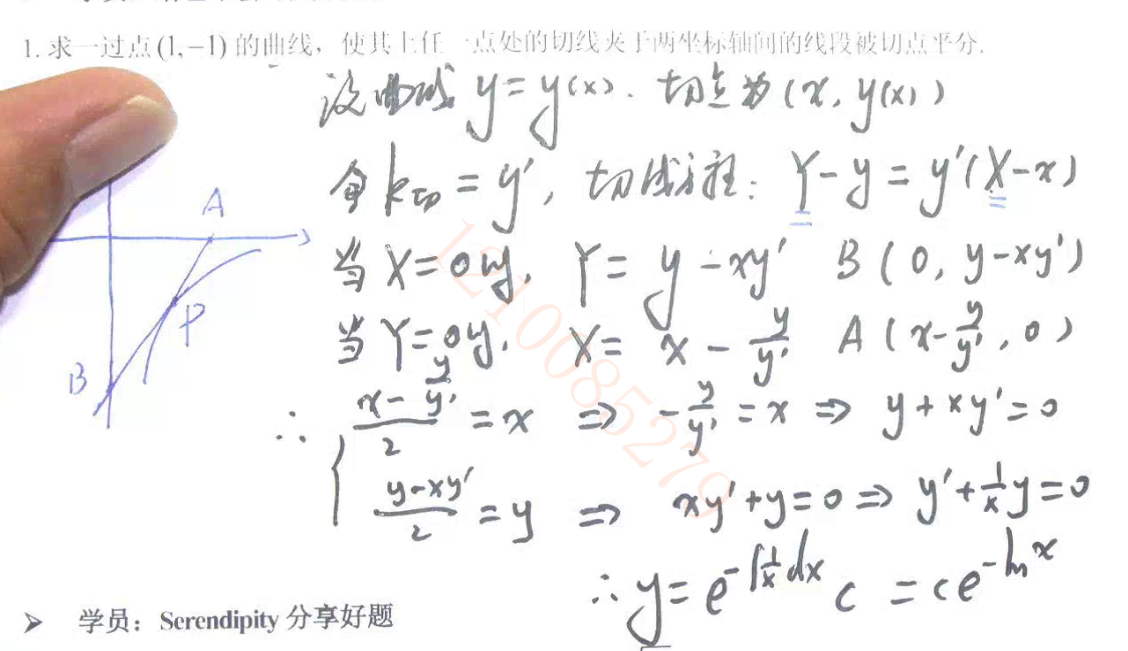 1. 求一过点 (1,−1) 的曲线，使其上任一点处的切线夹于两坐标轴间的线段被切点平分.
设曲线 y = y(x). 切点为 (x, y(x))
令 k切 = y', 切线方程: Y−y = y'(X−x)
当 X=0时, Y = y−xy' B (0, y−xy')
当 Y=0时, X = x − y/y' A (x−y/y', 0)
∴ (x−y/y')/2 = x ⇒ −y/y' = x ⇒ y+xy'=0
(y−xy')/2 = y ⇒ xy'+y=0 ⇒ y'+1/x y=0
∴ y = e^{−∫1/x dx} c = ce^{−ln x}
A
P
B
1210085279
➢ 学员：Serendipity 分享好题